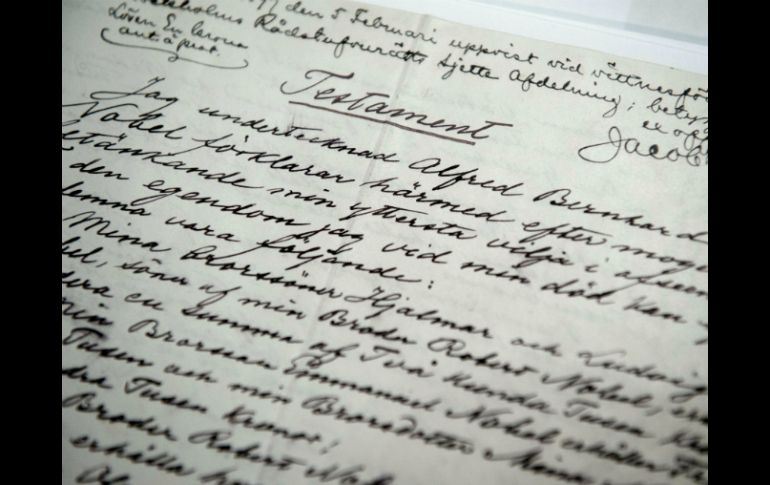 den 5 Februari uppvist vid vittnesför
Rådstufvurätts sjette afdelning; bety
Jacob
Testament
Jag undertecknad Alfred Bernhard
Nobel förklarar härmed efter moge
betänkande min yttersta vilja i afseen
den egendom jag vid min död kan
lemna vara följande:
Mina Brorssöner Hjalmar och Ludvig
bel, söner af min Broder Robert Nobel, er
en Summa af Två Hundra Tusen
min Brorsson Emmanuel Nobel erhåller
Tusen och min Brorsdotter Mina
dra Tusen Kronor;
Broder Robert
erhålla